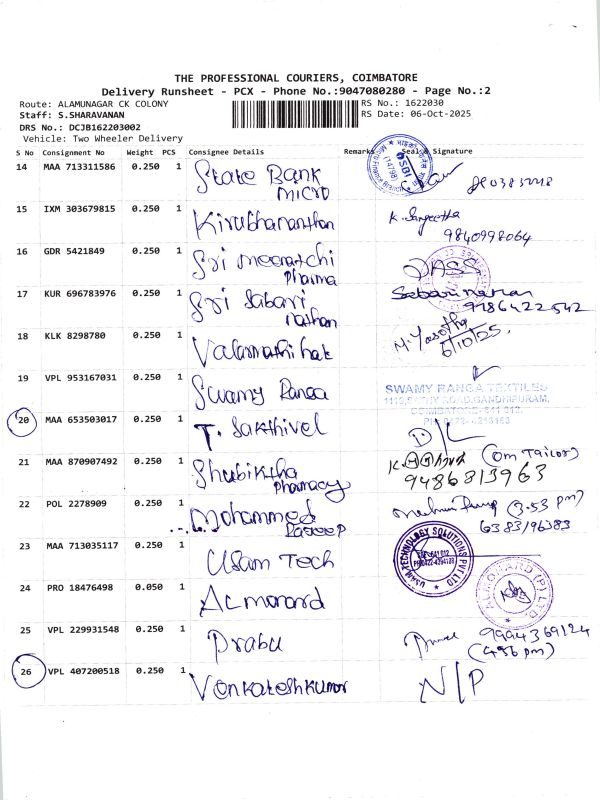 THE PROFESSIONAL COURIERS, COIMBATORE
Delivery Runsheet - PCX - Phone No.:9047080280 - Page No.:2
Route: ALAMUNAGAR CK COLONY
Staff: S.SHARAVANAN
DRS No.: DCJB162203002
Vehicle: Two Wheeler Delivery
RS No.: 1622030
RS Date: 06-Oct-2025
S No Consignment No Weight PCS Consignee Details Remarks Seal & Signature
14 MAA 713311586 0.250 1 State Bank
Micro
15 IXM 303679815 0.250 1 Kirubhananthan K. Sangeetha
9840998064
16 GDR 5421849 0.250 1 Sri meenatchi
Pharma
17 KUR 696783976 0.250 1 Sri Sabari
nathan
Sabarinathan
9786422542
18 KLK 8298780 0.250 1 Valarmathi M. Yasotha
6/10/25.
19 VPL 953167031 0.250 1 Swamy Ranga
SWAMY RANGA TEXTILES
20 MAA 653503017 0.250 1 T. Sakthivel D/L
21 MAA 870907492 1 0.250 Shubiktha
Pharmacy
(Om Tailor)
9486813963
22 POL 2278909 0.250 1 Mohammed
(3.53 pm)
6383196383
23 MAA 713035117 0.250 1 Usam Tech
USAM TECHNOLOGY SOLUTIONS PVT LTD
24 PRO 18476498 0.050 1 Almonard
ALMONARD (P) LTD.
25 VPL 229931548 0.250 1 Prabu 9994369124
(4.56 pm)
26 VPL 407200518 0.250 1 Venkateshkumar N/P